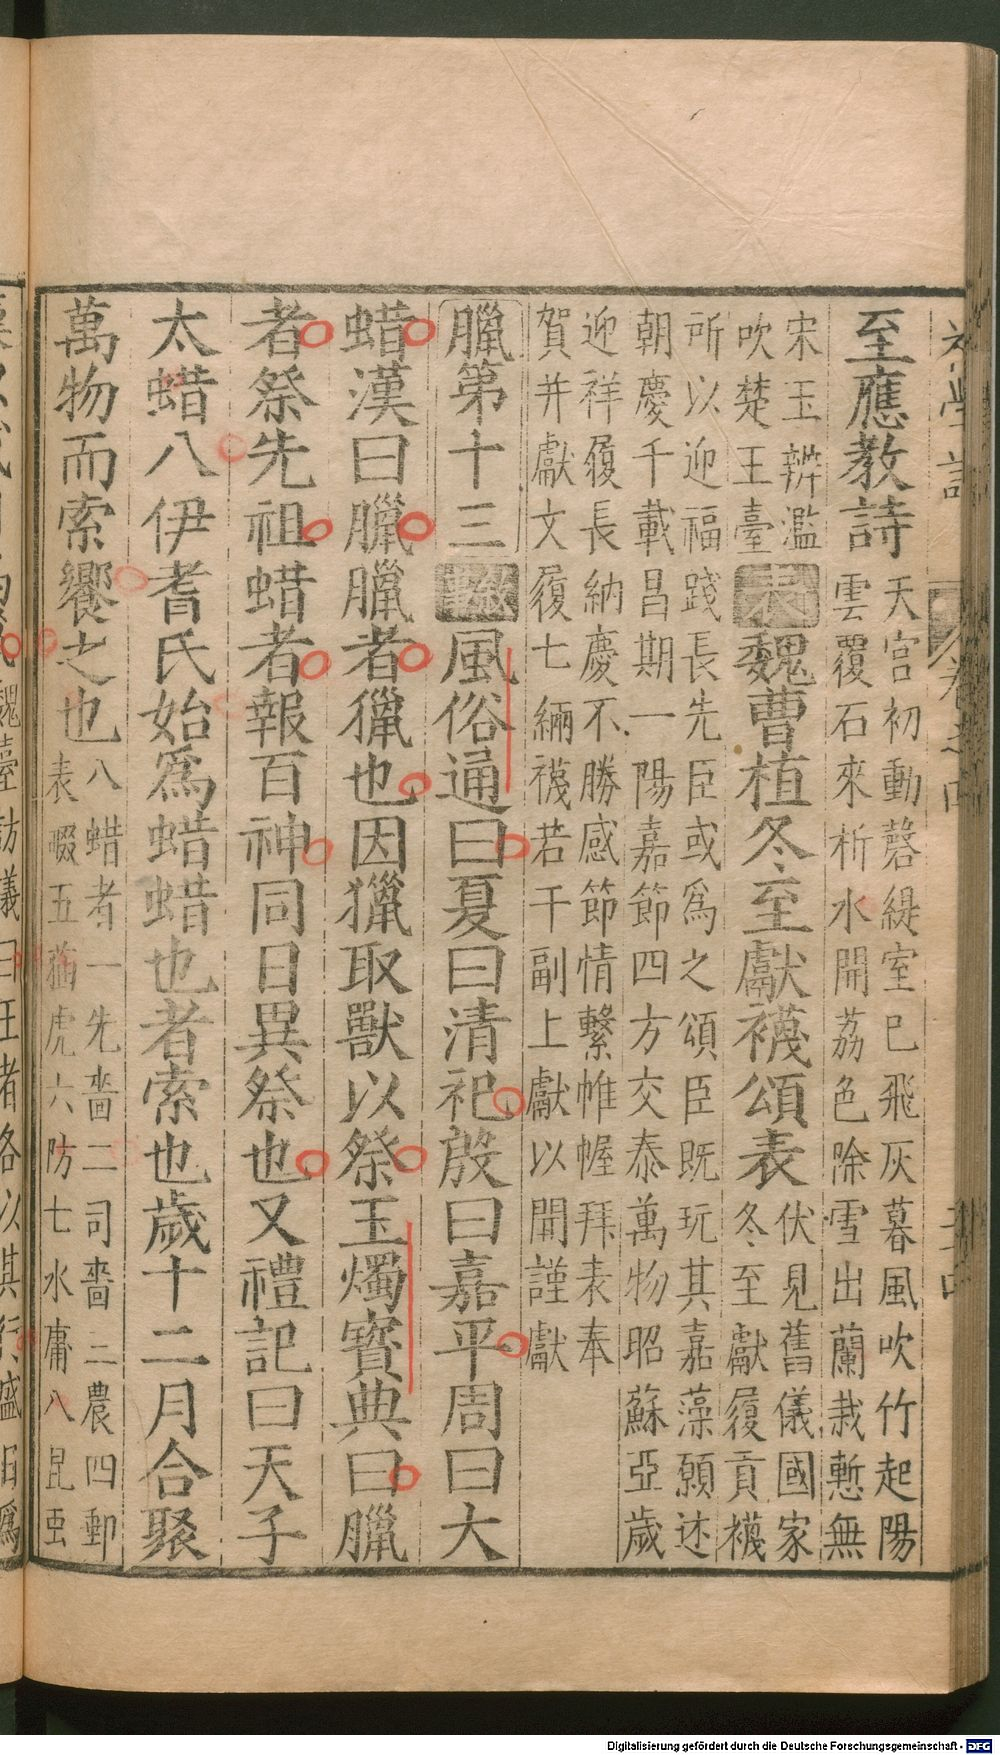 至應教詩
天宫初動磬緹室巳飛灰暮風吹竹起陽
雲覆石來析水開荔色除雪出蘭栽慙無
宋玉辨濫
吹楚王臺
表魏曹植冬至獻襪頌表
伏見舊儀國家
冬至獻履貢襪
所以迎福踐長先臣或爲之頌臣旣玩其嘉藻願述
朝慶千載昌期一陽嘉節四方交泰萬物昭蘇亞歲
迎祥履長納慶不勝感節情繫帷幄拜表奉
賀并獻文履七緉襪若干副上獻以聞謹獻
臘第十三
敘風俗通曰夏曰清祀殷曰嘉平周曰大
蜡漢曰臘臘者獵也因獵取獸以祭玉燭寳典曰臘
者祭先祖蜡者報百神同日異祭也又禮記曰天子
太蜡八伊耆氏始爲蜡蜡也者索也歲十二月合聚
萬物而索饗之也
八蜡者一先嗇二司嗇三農四郵
表畷五猫虎六防七水庸八昆䖝
Digitalisierung gefördert durch die Deutsche Forschungsgemeinschaft - DFG